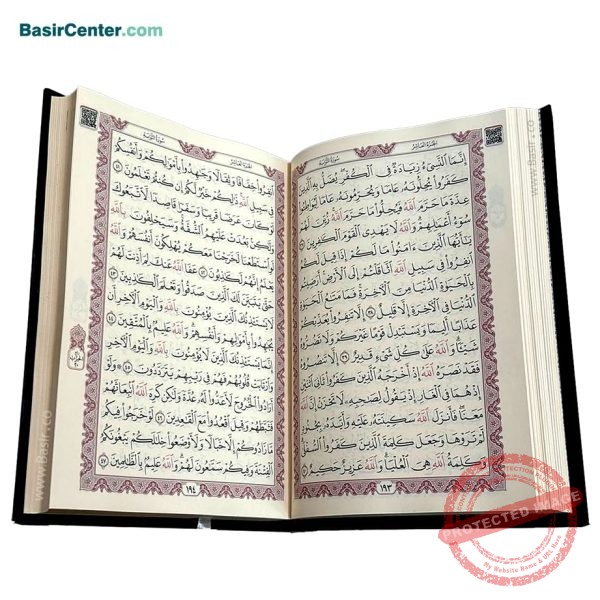 BasirCenter.com
الجزء العاشر
سورة التوبة
إِنَّمَا ٱلنَّسِىٓءُ زِيَادَةٌ فِى ٱلْكُفْرِ يُضَلُّ بِهِ ٱلَّذِينَ
كَفَرُوا۟ يُحِلُّونَهُۥ عَامًا وَيُحَرِّمُونَهُۥ عَامًا لِّيُوَاطِـُٔوا۟
عِدَّةَ مَا حَرَّمَ ٱللَّهُ فَيُحِلُّوا۟ مَا حَرَّمَ ٱللَّهُ زُيِّنَ لَهُمْ
سُوٓءُ أَعْمَـٰلِهِمْ وَٱللَّهُ لَا يَهْدِى ٱلْقَوْمَ ٱلْكَـٰفِرِينَ ٣٧
يَـٰٓأَيُّهَا ٱلَّذِينَ ءَامَنُوا۟ مَا لَكُمْ إِذَا قِيلَ لَكُمُ
ٱنفِرُوا۟ فِى سَبِيلِ ٱللَّهِ ٱثَّاقَلْتُمْ إِلَى ٱلْأَرْضِ أَرَضِيتُم
بِٱلْحَيَوٰةِ ٱلدُّنْيَا مِنَ ٱلْـَٔاخِرَةِ فَمَا مَتَـٰعُ ٱلْحَيَوٰةِ
ٱلدُّنْيَا فِى ٱلْـَٔاخِرَةِ إِلَّا قَلِيلٌ ٣٨ إِلَّا تَنفِرُوا۟ يُعَذِّبْكُمْ
عَذَابًا أَلِيمًا وَيَسْتَبْدِلْ قَوْمًا غَيْرَكُمْ وَلَا تَضُرُّوهُ
شَيْـًٔا وَٱللَّهُ عَلَىٰ كُلِّ شَىْءٍ قَدِيرٌ ٣٩ إِلَّا تَنصُرُوهُ
فَقَدْ نَصَرَهُ ٱللَّهُ إِذْ أَخْرَجَهُ ٱلَّذِينَ كَفَرُوا۟ ثَانِىَ ٱثْنَيْنِ
إِذْ هُمَا فِى ٱلْغَارِ إِذْ يَقُولُ لِصَـٰحِبِهِۦ لَا تَحْزَنْ إِنَّ ٱللَّهَ
مَعَنَا فَأَنزَلَ ٱللَّهُ سَكِينَتَهُۥ عَلَيْهِ وَأَيَّدَهُۥ بِجُنُودٍ
لَّمْ تَرَوْهَا وَجَعَلَ كَلِمَةَ ٱلَّذِينَ كَفَرُوا۟ ٱلسُّفْلَىٰ
وَكَلِمَةُ ٱللَّهِ هِىَ ٱلْعُلْيَا وَٱللَّهُ عَزِيزٌ حَكِيمٌ ٤٠
١٩٣
الجزء العاشر
سورة التوبة
ٱنفِرُوا۟ خِفَافًا وَثِقَالًا وَجَـٰهِدُوا۟ بِأَمْوَٰلِكُمْ وَأَنفُسِكُمْ
فِى سَبِيلِ ٱللَّهِ ذَٰلِكُمْ خَيْرٌ لَّكُمْ إِن كُنتُمْ تَعْلَمُونَ ٤١
لَوْ كَانَ عَرَضًا قَرِيبًا وَسَفَرًا قَاصِدًا لَّٱتَّبَعُوكَ
وَلَـٰكِنۢ بَعُدَتْ عَلَيْهِمُ ٱلشُّقَّةُ وَسَيَحْلِفُونَ بِٱللَّهِ
لَوِ ٱسْتَطَعْنَا لَخَرَجْنَا مَعَكُمْ يُهْلِكُونَ أَنفُسَهُمْ وَٱللَّهُ
يَعْلَمُ إِنَّهُمْ لَكَـٰذِبُونَ ٤٢ عَفَا ٱللَّهُ عَنكَ لِمَ أَذِنتَ لَهُمْ
حَتَّىٰ يَتَبَيَّنَ لَكَ ٱلَّذِينَ صَدَقُوا۟ وَتَعْلَمَ ٱلْكَـٰذِبِينَ ٤٣
لَا يَسْتَـْٔذِنُكَ ٱلَّذِينَ يُؤْمِنُونَ بِٱللَّهِ وَٱلْيَوْمِ ٱلْـَٔاخِرِ أَن
يُجَـٰهِدُوا۟ بِأَمْوَٰلِهِمْ وَأَنفُسِهِمْ وَٱللَّهُ عَلِيمٌۢ بِٱلْمُتَّقِينَ ٤٤
إِنَّمَا يَسْتَـْٔذِنُكَ ٱلَّذِينَ لَا يُؤْمِنُونَ بِٱللَّهِ وَٱلْيَوْمِ ٱلْـَٔاخِرِ
وَٱرْتَابَتْ قُلُوبُهُمْ فَهُمْ فِى رَيْبِهِمْ يَتَرَدَّدُونَ ٤٥ وَلَوْ
أَرَادُوا۟ ٱلْخُرُوجَ لَأَعَدُّوا۟ لَهُۥ عُدَّةً وَلَـٰكِن كَرِهَ ٱللَّهُ ٱنۢبِعَاثَهُمْ
فَثَبَّطَهُمْ وَقِيلَ ٱقْعُدُوا۟ مَعَ ٱلْقَـٰعِدِينَ ٤٦ لَوْ خَرَجُوا۟ فِيكُم
مَّا زَادُوكُمْ إِلَّا خَبَالًا وَلَأَوْضَعُوا۟ خِلَـٰلَكُمْ يَبْغُونَكُمُ
ٱلْفِتْنَةَ وَفِيكُمْ سَمَّـٰعُونَ لَهُمْ وَٱللَّهُ عَلِيمٌۢ بِٱلظَّـٰلِمِينَ ٤٧
١٩٤
www.Basir.co
PROTECTED IMAGE
My Website Name & URL Here